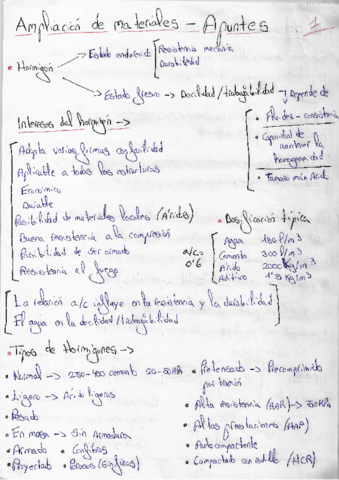 Ampliación de materiales - Apuntes
1
• Hormigón
Estado endurecido
Resistencia mecánica
Durabilidad
Estado fresco → Docilidad/trabajabilidad → Depende de
• Fluidez - consistencia
• Capacidad de mantener la homogeneidad
• Tamaño máx Árido
Intereses del hormigón →
Adopta varias formas con facilidad
Aplicable a todas las estructuras
Económico
Durable
Posibilidad de materiales locales (Áridos)
Buena resistencia a la compresión
Posibilidad de ser armado
Resistencia al fuego
• Dosificación típica
a/c = 0'6
Agua 180 l/m³
Cemento 300 l/m³
Árido 2000 kg/m³
Aditivo kg/m³
La relación a/c influye en la resistencia y la durabilidad
El agua en la docilidad/trabajabilidad
• Tipos de Hormigones →
• Normal → 250-400 cemento 20-50 MPa
• Ligero → Árido ligeros
• Pesado
• En masa → Sin Armadura
• Armado • Con fibras
• Proyectado • Poroso (Sin finos)
• Pretensado → Precomprimido por tracción
• Alta resistencia (HAR) → 50 MPa
• Altas prestaciones (HAP)
• Autocompactante
• Compactado con rodillo (HCR)